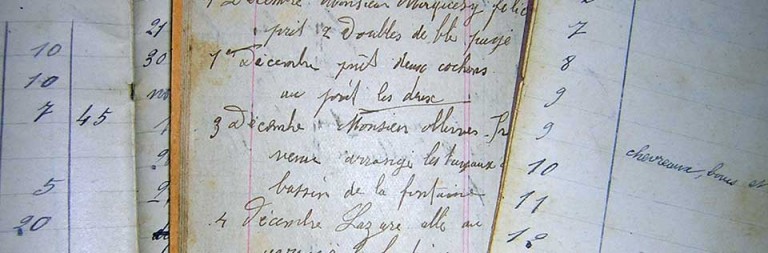 10
10
7 45
5
20
21
30
décembre Monsieur
prit 2 Doubles de blé
1er décembre prit deux cochons
au les deux
3 Décembre Monsieur
venu arranger les tuyaux
bassin de la fontaine
4 décembre Lazare allé au
7
8
9
9
10 chevreaux, boucs et
11
12